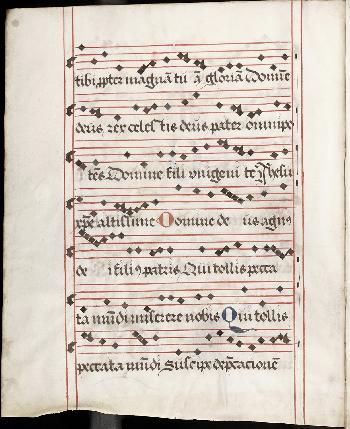 tibi ꝓpter magnā tu ā gloriā Domine
deus rex celes tis deus pater omnipo
tēs Domine fili vnigeni te Ihesu
xp̄e altissime Domine de us agnꝰ
de i filiꝰ patris Qui tollis pecca
ta mūdi miserere nobis Qui tollis
peccata mūdi suscipe dep̄cationē